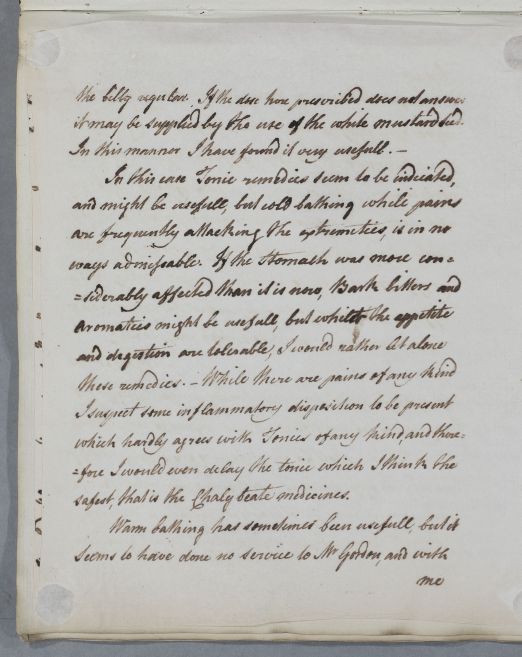 the belly regular. If the dose here prescribed does not answer
it may be supplied by the use of the white mustard seed.
In this manner I have found it very usefull. —
In this case Tonic remedies seem to be indicated,
and might be usefull, but cold bathing while pains
are frequently attacking the extremities, is in no
ways admissable. If the Stomach was more con=
=siderably affected than it is now, Bark bitters and
Aromatics might be usefull, but whilst the appetite
and digestion are tolerable, I would rather let alone
these remedies. — While there are pains of any kind
I suspect some inflammatory disposition to be present
which hardly agrees with Tonics of any kind, and there=
=fore I would even delay the tonic which I think the
safest, that is the Chalybeate medicines.
Warm bathing has sometimes been usefull, but it
seems to have done no service to Mr Gordon, and with
me